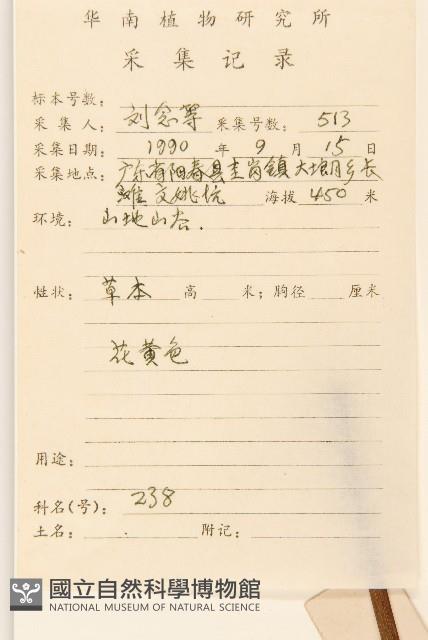 华南植物研究所
采集记录
标本号数:
采集人: 刘念等 采集号数: 513
采集日期: 1990 年 9 月 15 日
采集地点: 广东省阳春县圭岗镇大朗乡长
坑 海拔 450 米
环境: 山地山谷.
性状: 草本 高 米; 胸径 厘米
花黄色
用途:
科名(号): 238
土名: 附记:
國立自然科學博物館
NATIONAL MUSEUM OF NATURAL SCIENCE